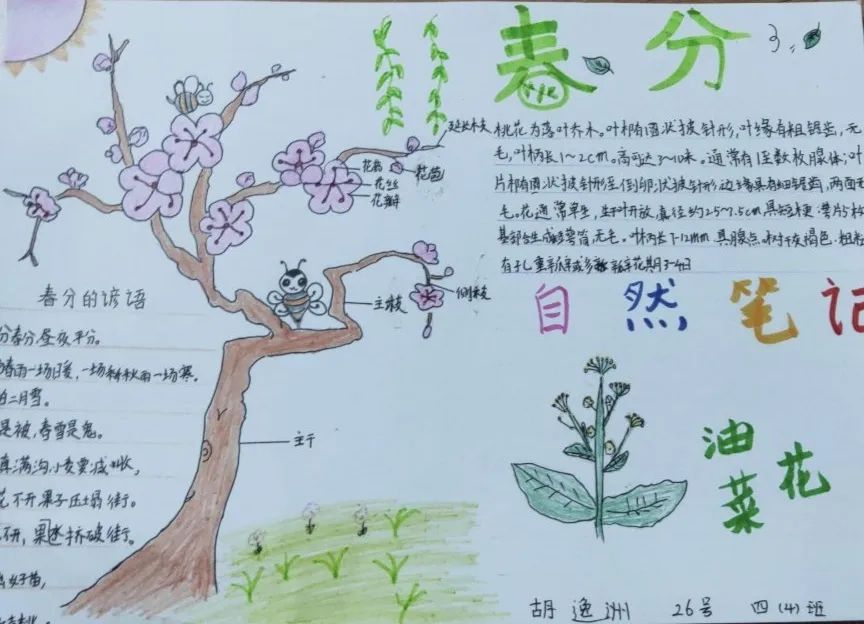 春分
延长木夫
桃花为落叶乔木。叶椭圆状披针形,叶缘有粗锯齿,无
毛,叶柄长1~2cm。高可达3~10米。通常有1至数枚腺体;叶
片椭圆状披针形至倒卵状披针形边缘具有细锯齿,两面无
毛。花通常单生,先叶开放,直径约2.5~7.5cm具短梗,萼片
基部合生成萼筒,无毛。叶柄长7-12mm,具腺点。树干灰褐色,粗糙
有孔。花期3-4月
花药
花丝
花瓣
花苞
主枝
侧枝
主干
自然笔记
油菜花
春分的谚语
分春分,昼夜平分。
春雨一场暖,一场秋雨一场寒。
二月雪。
是被,春雪是鬼。
满沟,小麦要减收,
花不开果子压塌街。
不开,果子挤破街。
好苗,
胡逸洲 26号 四(4)班